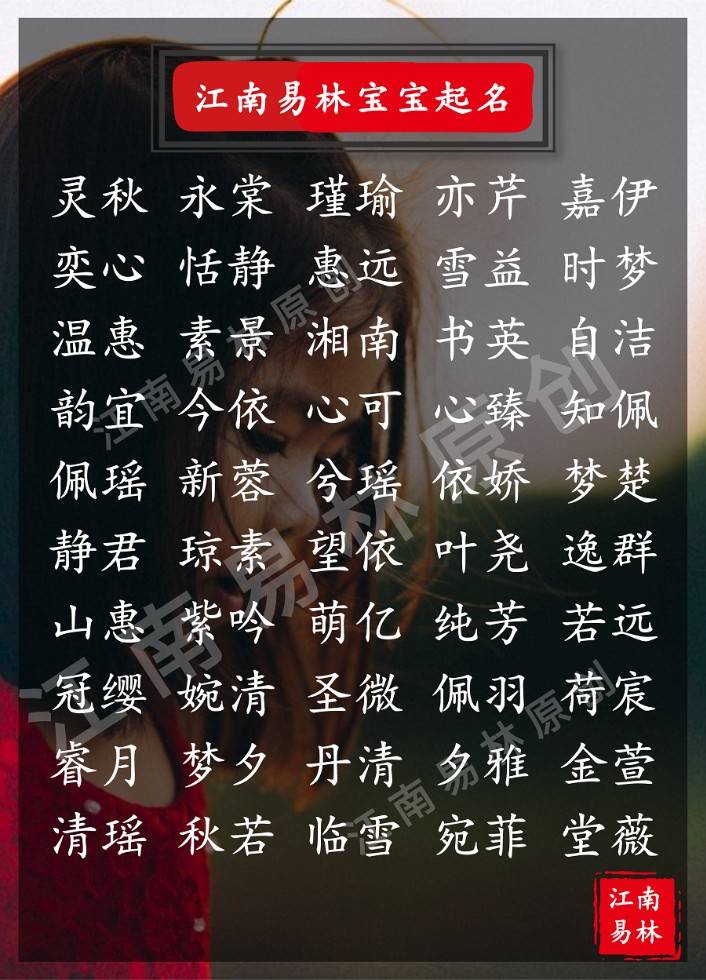 江南易林宝宝起名
灵秋 永棠 瑾瑜 亦芹 嘉伊
奕心 恬静 惠远 雪益 时梦
温惠 素景 湘南 书英 自洁
韵宜 今依 心可 心臻 知佩
佩瑶 新蓉 兮瑶 依娇 梦楚
静君 琼素 望依 叶尧 逸群
山惠 紫吟 萌亿 纯芳 若远
冠缨 婉清 圣微 佩羽 荷宸
睿月 梦夕 丹清 夕雅 金萱
清瑶 秋若 临雪 宛菲 堂薇
江南易林原创
江南易林原创
江南易林原创
江南
易林